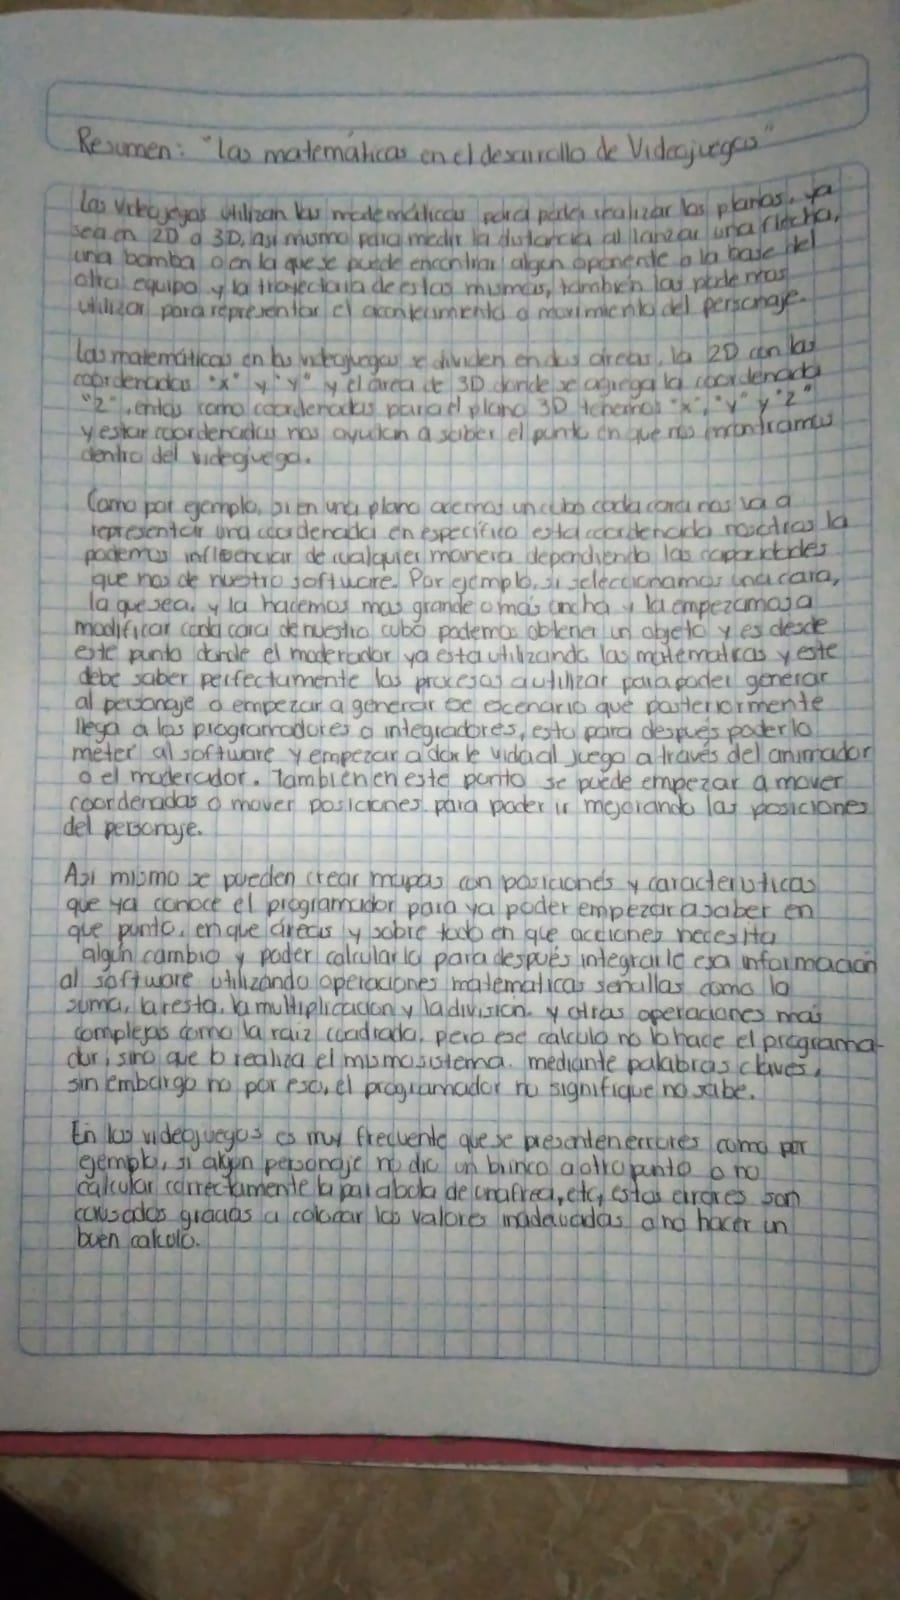 Resumen: "Las matemáticas en el desarrollo de Videojuegos"
Los videojegos utilizan las matemáticas para poder realizar los planos, ya
sea en 2D o 3D, así mismo para medir la distancia al lanzar una flecha,
una bomba o en la que se puede encontrar algún oponente o la base del
otro equipo y la trayectoria de estas mismas, también las podemos
utilizar para representar el acontecimiento o movimiento del personaje.
Las matemáticas en los videojuegos se dividen en dos áreas, la 2D con las
coordenadas "x" y "y" y el área de 3D donde se agrega la coordenada
"z", entos como coordenadas para el plano 3D tenemos "x", "y" y "z"
y estar coordenadas nos ayudan a saber el punto en que nos encontramos
dentro del videojuego.
Como por ejemplo, si en una plano acemos un cubo cada cara nos va a
representar una coordenada en específico esta coordenada nosotros la
podemos influenciar de cualquier manera dependiendo las capacidades
que nos de nuestro software. Por ejemplo, si seleccionamos una cara,
la que sea, y la hacemos mas grande o más ancha y la empezamos a
modificar cada cara de nuestro cubo podemos obtener un objeto y es desde
este punto donde el moderador ya esta utilizando las matematicas y este
debe saber perfectamente los procesos a utilizar para poder generar
al personaje o empezar a generar ese escenario que posteriormente
llega a los programadores o integradores, esto para después poderlo
meter al software y empezar a darle vida al juego a través del animador
o el moderador. Tambien en este punto se puede empezar a mover
coordenadas o mover posiciones para poder ir mejorando las posiciones
del personaje.
Asi mismo se pueden crear mapas con posiciones y características
que ya conoce el programador para ya poder empezar a saber en
que punto, en que áreas y sobre todo en que acciones necesita
algún cambio y poder calcularlo para después integrarlo esa información
al software utilizando operaciones matematicas senullas como la
suma, la resta, la multiplicación y la división. y otras operaciones más
complejas como la raiz cuadrada, pero ese calculo no lo hace el programa-
dor, sino que lo realiza el mismo sistema. mediante palabras claves,
sin embargo no por eso, el programador no signifique no sabe.
En los videojuegos es muy frecuente que se presenten errores como por
ejemplo, si algun personaje no dio un brinco a otro punto o no
calcular correctamente la parabola de una etc, estos errores son
causados gracias a colocar los valores inadecuados o no hacer un
buen calculo.